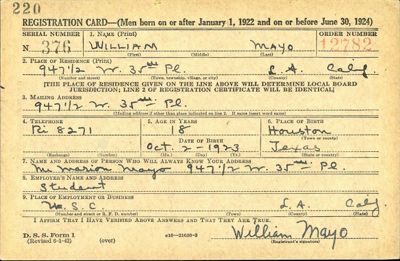 220
REGISTRATION CARD—(Men born on or after January 1, 1922 and on or before June 30, 1924)
SERIAL NUMBER 1. NAME (Print) ORDER NUMBER
N 376 WILLIAM MAYO 12782
(First) (Middle) (Last)
2. PLACE OF RESIDENCE (Print)
947 1/2 W. 35th Pl. L.A. Calif.
(Number and street) (Town, township, village, or city) (County) (State)
[THE PLACE OF RESIDENCE GIVEN ON THE LINE ABOVE WILL DETERMINE LOCAL BOARD
JURISDICTION; LINE 2 OF REGISTRATION CERTIFICATE WILL BE IDENTICAL]
3. MAILING ADDRESS
947 1/2 W. 35th Pl.
[Mailing address if other than place indicated on line 2. If same insert word same]
4. TELEPHONE 5. AGE IN YEARS 6. PLACE OF BIRTH
Ri 8271 18 Houston
DATE OF BIRTH (Town or county)
Oct. 2-1923 Texas
(Mo.) (Day) (Yr.) (State or country)
7. NAME AND ADDRESS OF PERSON WHO WILL ALWAYS KNOW YOUR ADDRESS
Marion Mayo 947 1/2 W. 35th Pl.
8. EMPLOYER'S NAME AND ADDRESS
Student
9. PLACE OF EMPLOYMENT OR BUSINESS
U.S.C. L.A. Calif.
(Number and street or R. F. D. number) (Town) (County) (State)
I AFFIRM THAT I HAVE VERIFIED ABOVE ANSWERS AND THAT THEY ARE TRUE.
D. S. S. Form 1
(Revised 6-1-42) (over) William Mayo
(Registrant's signature)